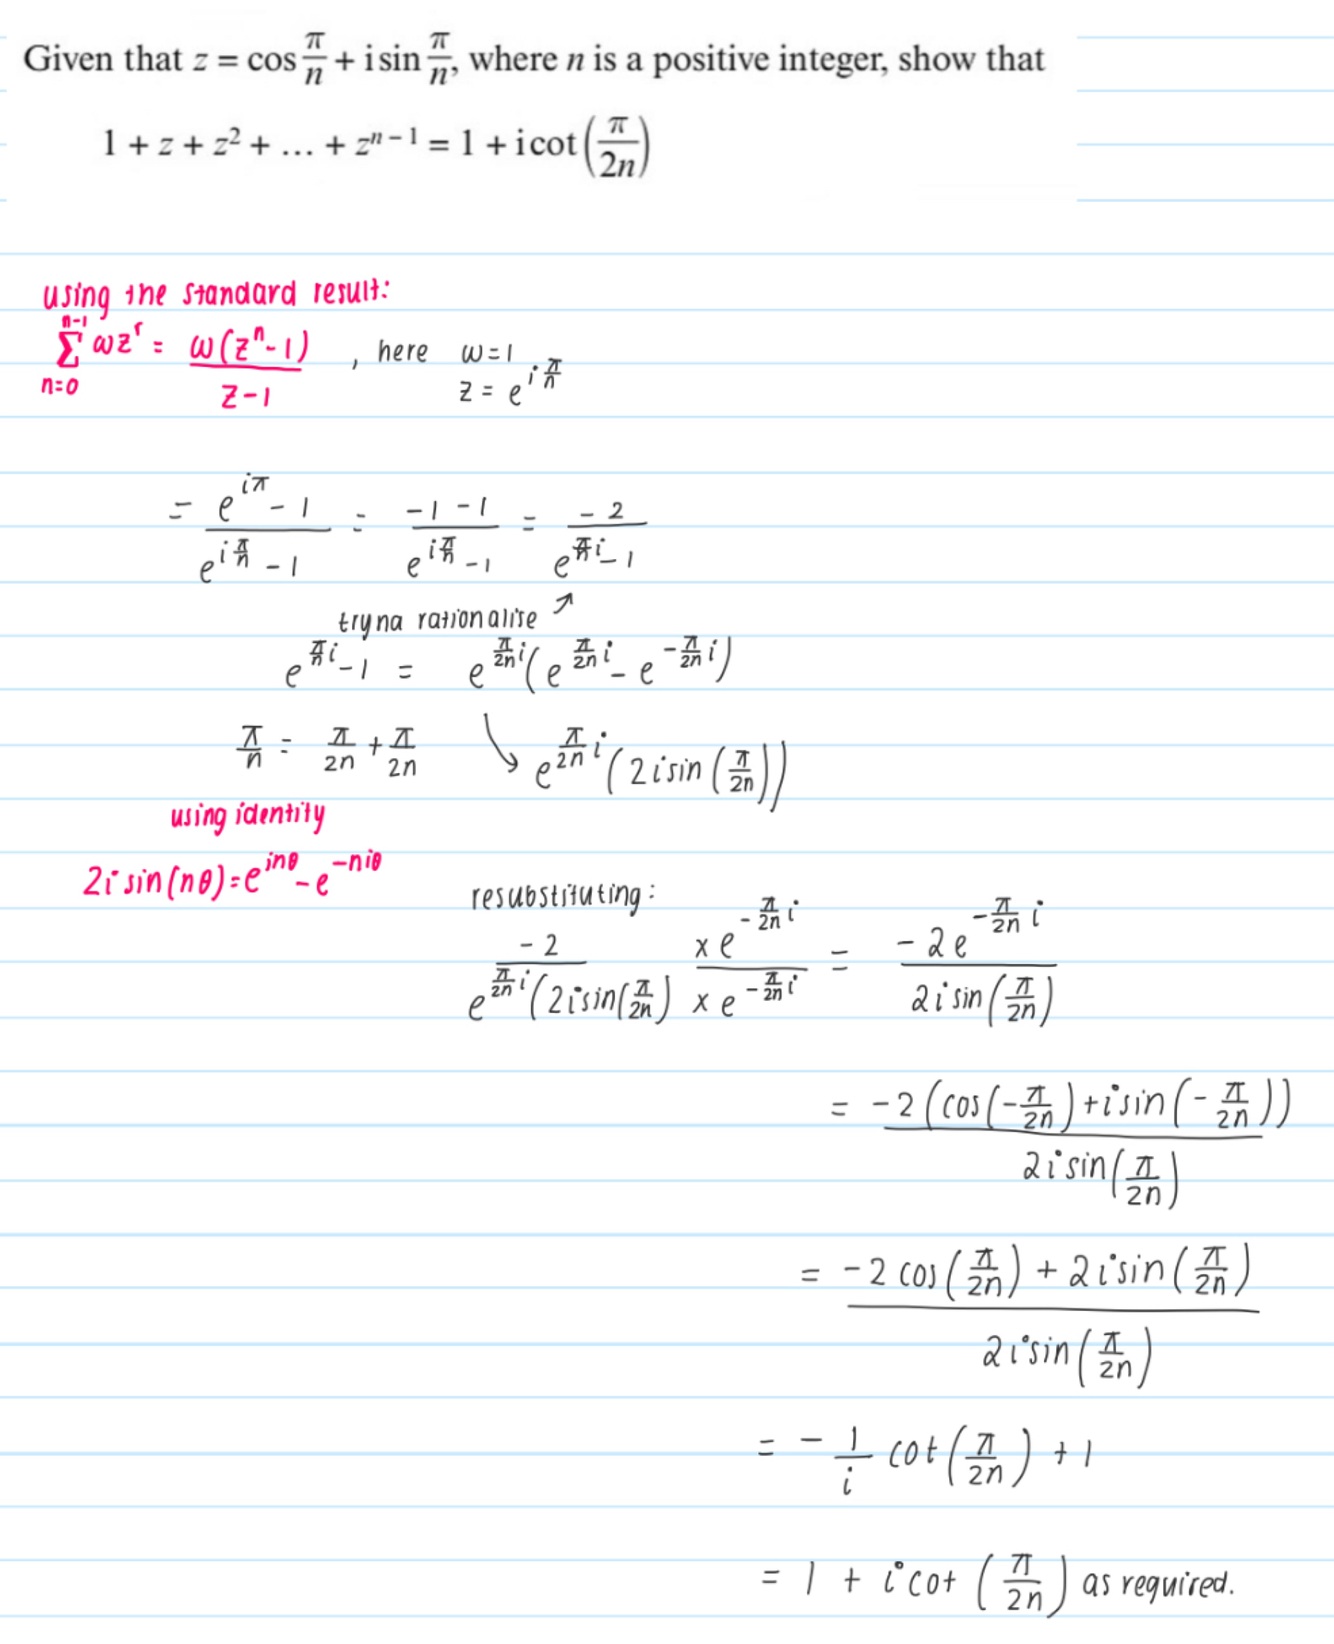 Given that z = cos π/n + i sin π/n, where n is a positive integer, show that
1 + z + z² + … + zⁿ⁻¹ = 1 + i cot(π/2n)
using the standard result:
∑_{n=0}^{n-1} ωz^r = ω(zⁿ-1)/(z-1) , here ω=1
z = e^{iπ/n}
= (e^{iπ} - 1)/(e^{iπ/n} - 1) = (-1 -1)/(e^{iπ/n} -1) = -2/(e^{π/n i} -1)
tryna rationalise ↗
e^{π/n i} -1 = e^{π/2n i}(e^{π/2n i} - e^{-π/2n i})
π/n = π/2n + π/2n ↘ e^{π/2n i}(2i sin(π/2n))
using identity
2i sin(nθ) = e^{inθ} - e^{-niθ}
resubstituting:
-2/(e^{π/2n i}(2i sin(π/2n)) × e^{-π/2n i}/× e^{-π/2n i} = -2e^{-π/2n i}/(2i sin(π/2n))
= -2(cos(-π/2n) + i sin(-π/2n))/(2i sin(π/2n))
= (-2 cos(π/2n) + 2i sin(π/2n))/(2i sin(π/2n))
= - 1/i cot(π/2n) + 1
= 1 + i cot(π/2n) as required.